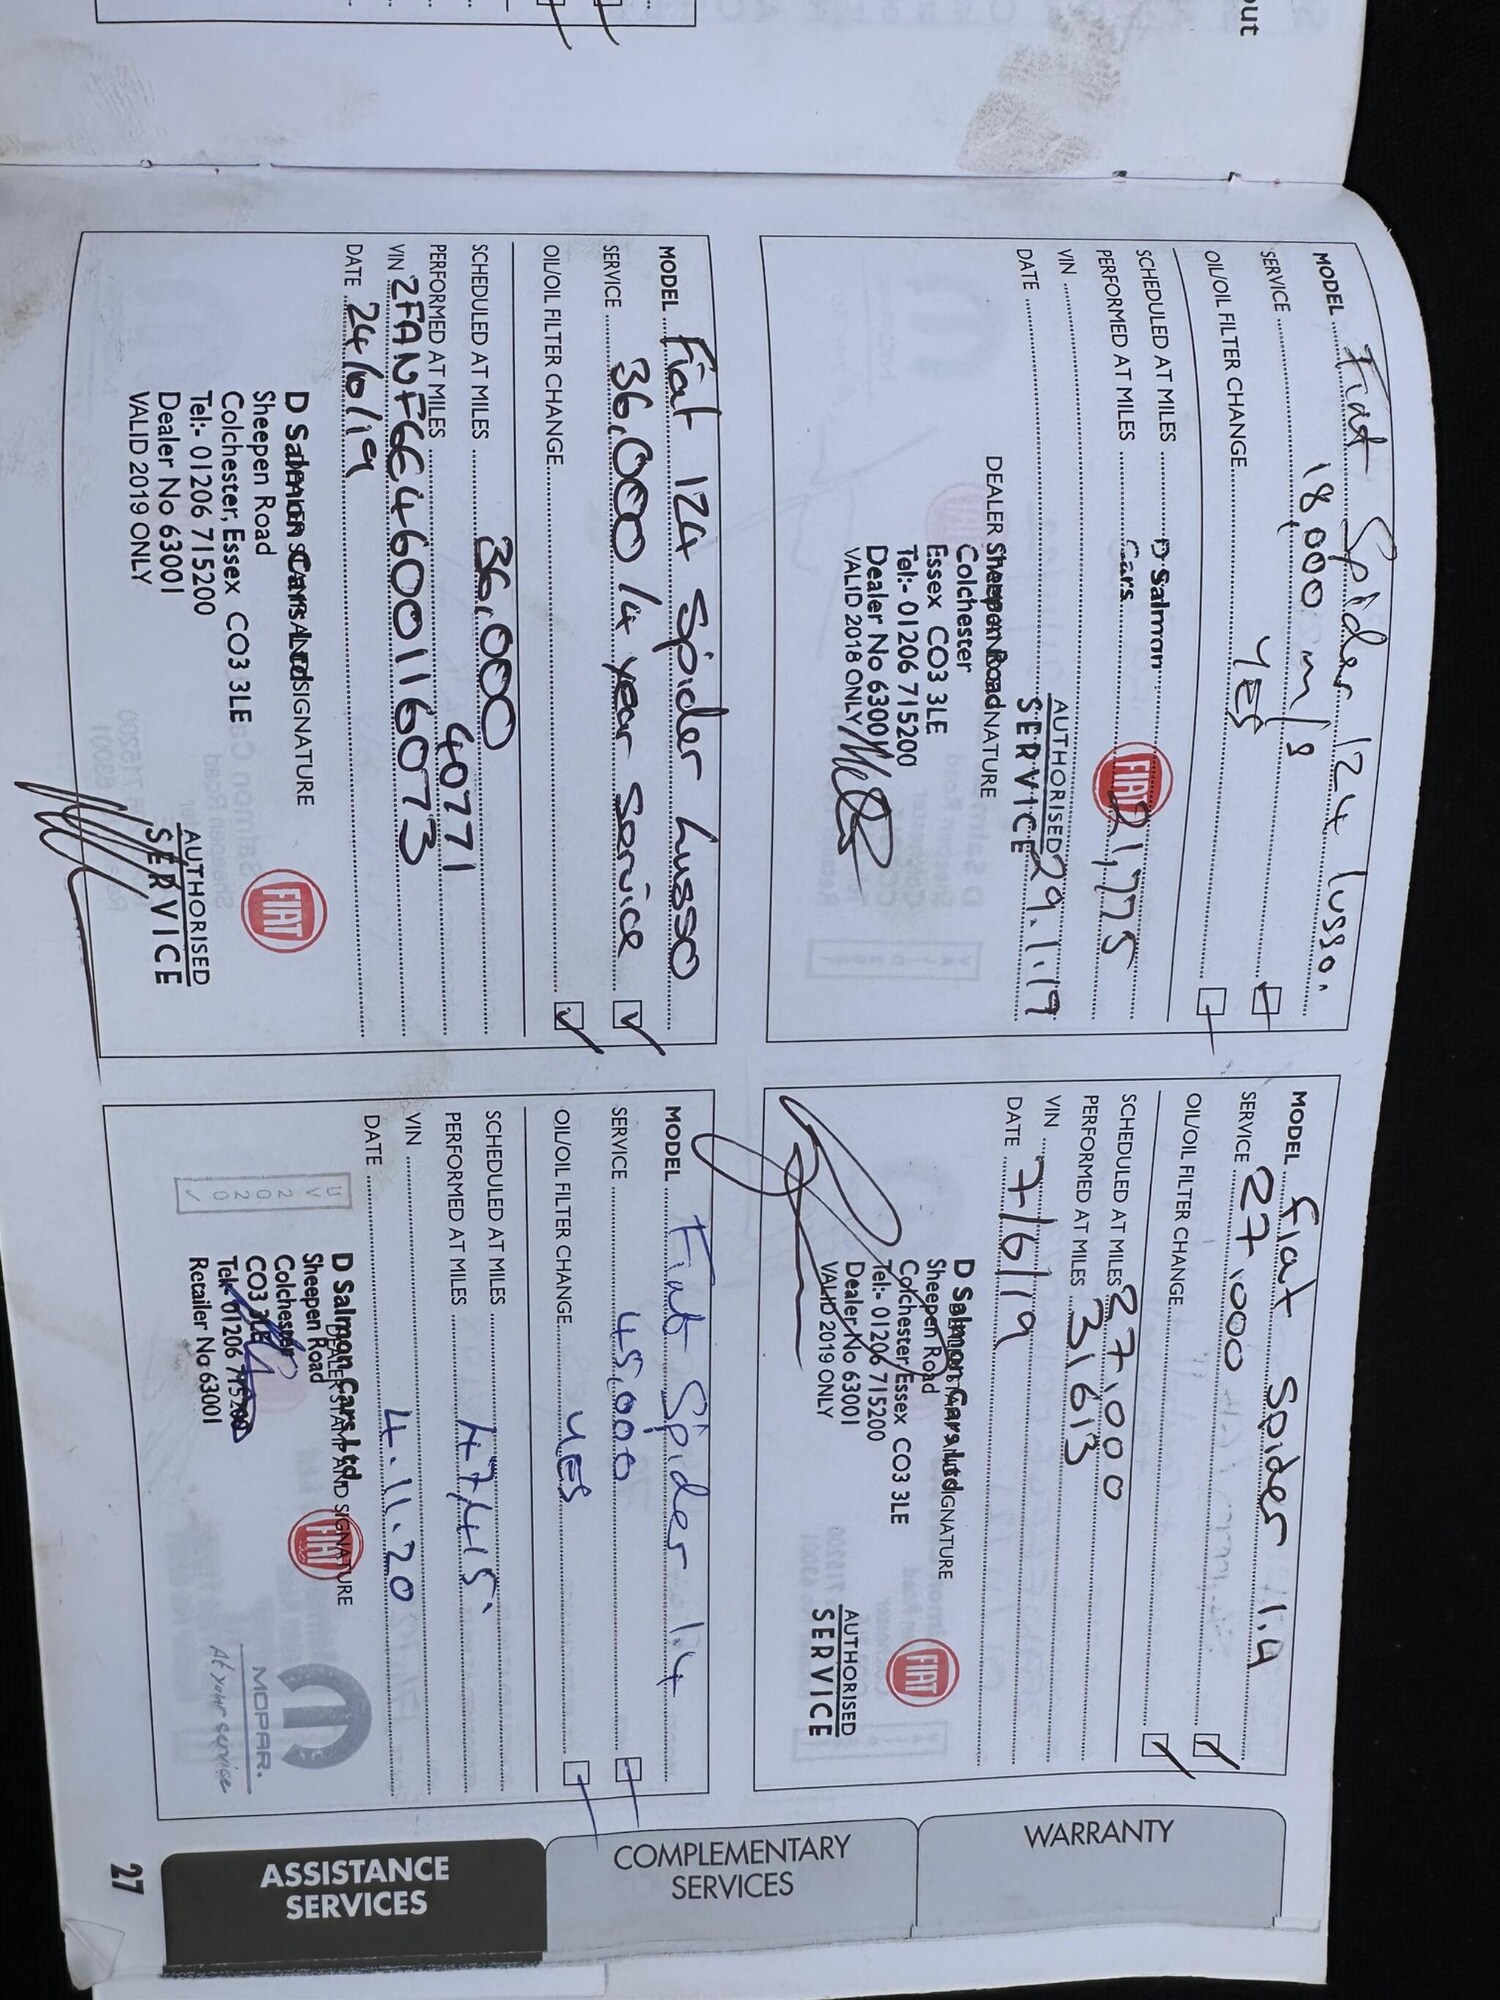 out
MODEL Fiat Spider 124 lusso.
SERVICE 18,000 m/s
OIL/OIL FILTER CHANGE YES
SCHEDULED AT MILES
PERFORMED AT MILES 21,775
VIN
DATE 29.1.19
D Salmon
Cars
FIAT
AUTHORISED
SERVICE
DEALER
Sheepen Road
Colchester
Essex CO3 3LE
Tel:- 01206 715200
Dealer No 63001
VALID 2018 ONLY
MODEL Fiat Spider 1.4
SERVICE 27,000
OIL/OIL FILTER CHANGE
SCHEDULED AT MILES 27,000
PERFORMED AT MILES 31613
VIN
DATE 7/6/19
D Salmon Cars Ltd SIGNATURE
Sheepen Road
Colchester, Essex CO3 3LE
Tel:- 01206 715200
Dealer No 63001
VALID 2019 ONLY
FIAT
AUTHORISED
SERVICE
MODEL Fiat 124 Spider Lusso
SERVICE 36,000 /4 year Service
OIL/OIL FILTER CHANGE
SCHEDULED AT MILES 36,000
PERFORMED AT MILES 40771
VIN ZFANF6E4600116073
DATE 24/10/19
D Salmon Cars Ltd SIGNATURE
Sheepen Road
Colchester, Essex CO3 3LE
Tel:- 01206 715200
Dealer No 63001
VALID 2019 ONLY
FIAT
AUTHORISED
SERVICE
MODEL Fiat Spider 1.4
SERVICE 45,000
OIL/OIL FILTER CHANGE YES
SCHEDULED AT MILES
PERFORMED AT MILES 47415.
VIN
DATE 4.11.20
DEALER STAMP AND SIGNATURE
D Salmon Cars Ltd
Sheepen Road
Colchester
CO3 3LE
Tel: 01206 715200
Retailer No 63001
FIAT
MOPAR.
At your service
WARRANTY
COMPLEMENTARY
SERVICES
ASSISTANCE
SERVICES
27